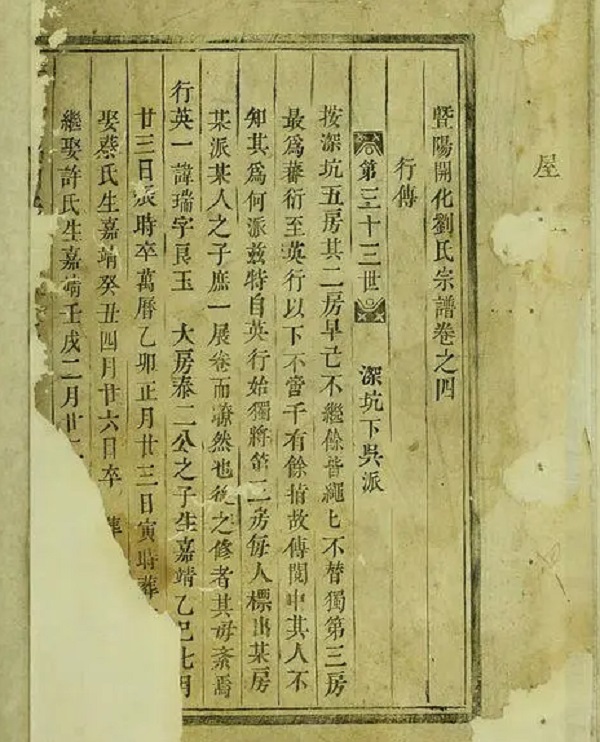 屋
暨陽開化劉氏宗譜卷之四
行傳
第三十三世 深坑下吳派
按深坑五房其二房早已不繼餘皆繩匕不替獨第三房
最爲蕃衍至英行以下不啻千有餘指故傳閱中其人不
知其爲何派兹特自英行始獨將第三房每人標出某房
某派某人之子庶一展卷而瞭然也後之修者其毋紊焉
行英一諱瑞字良玉 大房泰二公之子生嘉靖乙巳七月
廿三日辰時卒萬曆乙卯正月廿三日寅時葬
娶蔡氏生嘉靖癸丑四月廿六日卒 葬
繼娶許氏生嘉靖壬戌二月廿二